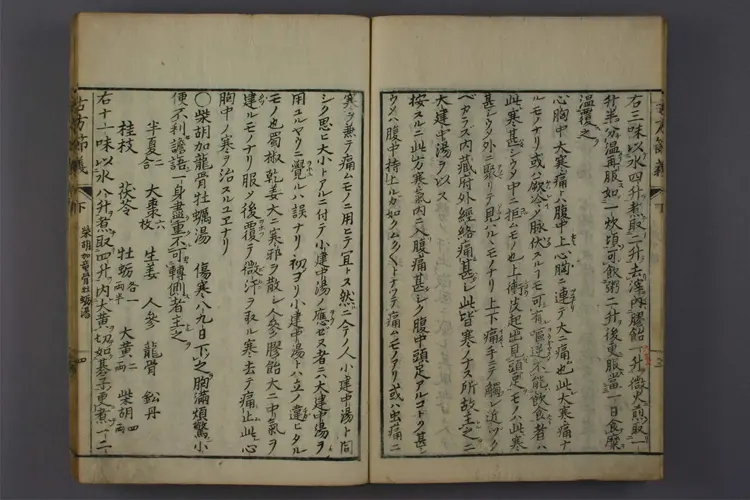 右三味以水四升煮取二升去滓内膠飴一升微火煎取一
升半分温再服如一炊頃可飲粥二升後更服當一日食糜
温覆之
心胸中大寒痛ハ腹中上心胸ニ連テ大ニ痛也此大寒痛ナ
ルモノナリ或ハ厥冷タ脉伏スルーモ可有嘔逆不能飲食者ハ
此寒甚シクタ中ニ拒ムモノ也上衝皮起出見頭足モノハ此寒
甚シクタ外ニ聚リテ見ハルヽモノナリ上下痛手ニテ觸レ近ツク
ベカラズ内藏府外經絡痛甚シ此皆寒ノナス所故主之ニ
大建中湯ヲ以ス
按スルニ此方寒氣内ニ入腹痛甚シク腹中頭足アルコトク甚シ
ウメハ腹中持上ルカ如クムク〱トナツテ痛ムモノナリ或ハ虫痛ニ
寒ヲ兼テ痛ムモノニ用ヒテ宜トス然ニ今ノ人小建中湯ト同
シク思ヒ大小トアルニ付テ小建中湯ノ應セズ者ニ大建中湯ヲ
用ユルヤウニ覺ルハ誤ナリ初ヨリ小建中湯トス立ノ違ヒタル
モノ也蜀椒乾姜大ニ寒邪ヲ散シ人參膠飴大ニ中氣ヲ
建ルモノナリ服ノ後覆テ微汗ヲ取ル寒去テ痛止此心
胸中ノ寒ヲ治スルユエナリ
〇柴胡加龍骨牡蠣湯 傷寒八九日下之胸滿煩驚小
便不利譫語一身盡重不可轉側者主之
半夏二合 大棗六 生姜 人參 龍骨 鉛丹
桂枝 茯苓 牡蛎各一両半 大黄二両 柴胡四両
右十一味以水八升煮取四升内大黄切如碁子更煮一二
古方節義 下 柴胡加竜骨牡蠣湯 四